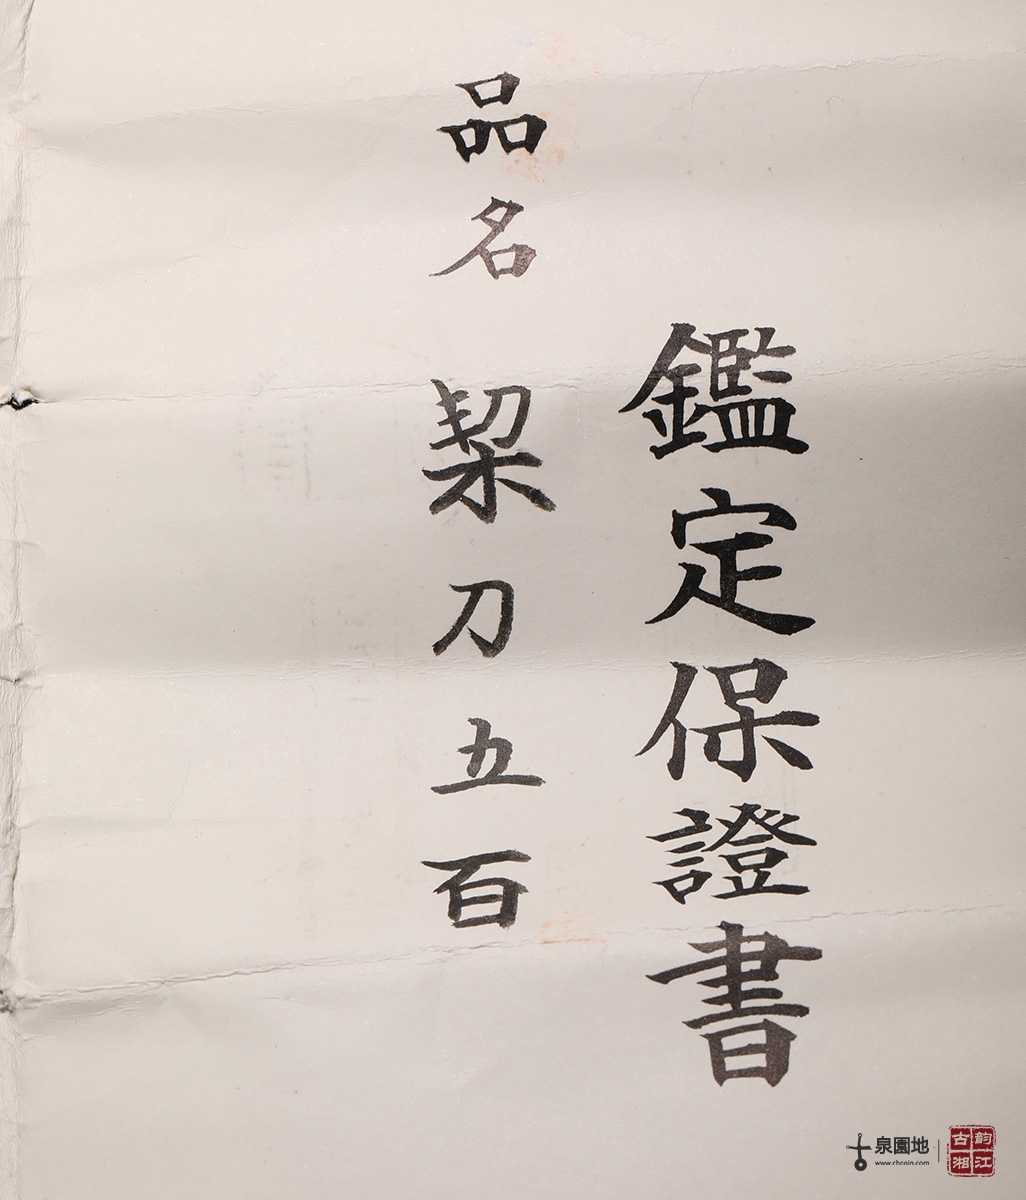 鑑定保證書
品名 栔刀五百
泉園地
www.chcoin.com
韵江
古湘